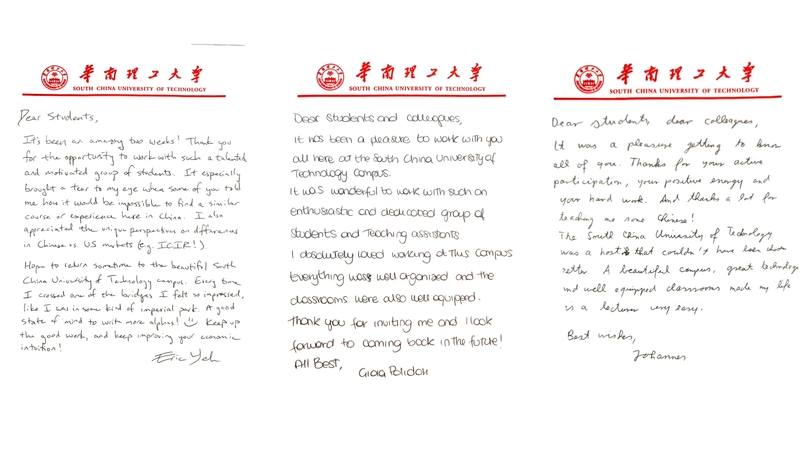 華南理工大學
SOUTH CHINA UNIVERSITY OF TECHNOLOGY
Dear Students,
It's been an amazing two weeks! Thank you
for the opportunity to work with such a talented
and motivated group of students. It especially
brought a tear to my eye when some of you told
me how it would be impossible to find a similar
course or experience here in China. I also
appreciated the unique perspectives on differences
in Chinese vs. US markets (e.g. ICIR!)
Hope to return sometime to the beautiful South
China University of Technology campus. Every time
I crossed one of the bridges I felt so impressed,
like I was in some kind of imperial park. A good
state of mind to write more alphas! Keep up
the good work, and keep improving your economic
intuition!
Eric Yeh
華南理工大學
SOUTH CHINA UNIVERSITY OF TECHNOLOGY
Dear Students and colleagues,
it has been a pleasure to work with you
all here at the South China University of
Technology Campus.
It was wonderful to work with such an
enthusiastic and dedicated group of
students and Teaching assistants
I absolutely loved working at this Campus
Everything was well organized and the
classrooms were also well equipped.
Thank you for inviting me and I look
forward to coming back in the future!
All Best,
Gioia Polidori
華南理工大學
SOUTH CHINA UNIVERSITY OF TECHNOLOGY
Dear students, dear colleagues,
It was a pleasure getting to know
all of you. Thanks for your active
participation, your positive energy and
your hard work. And thanks a lot for
teaching me some Chinese!
The South China University of Technology
was a host that couldn't have been
better. A beautiful campus, great technology
and well equipped classrooms made my life
as a lecturer very easy.
Best wishes,
Johannes